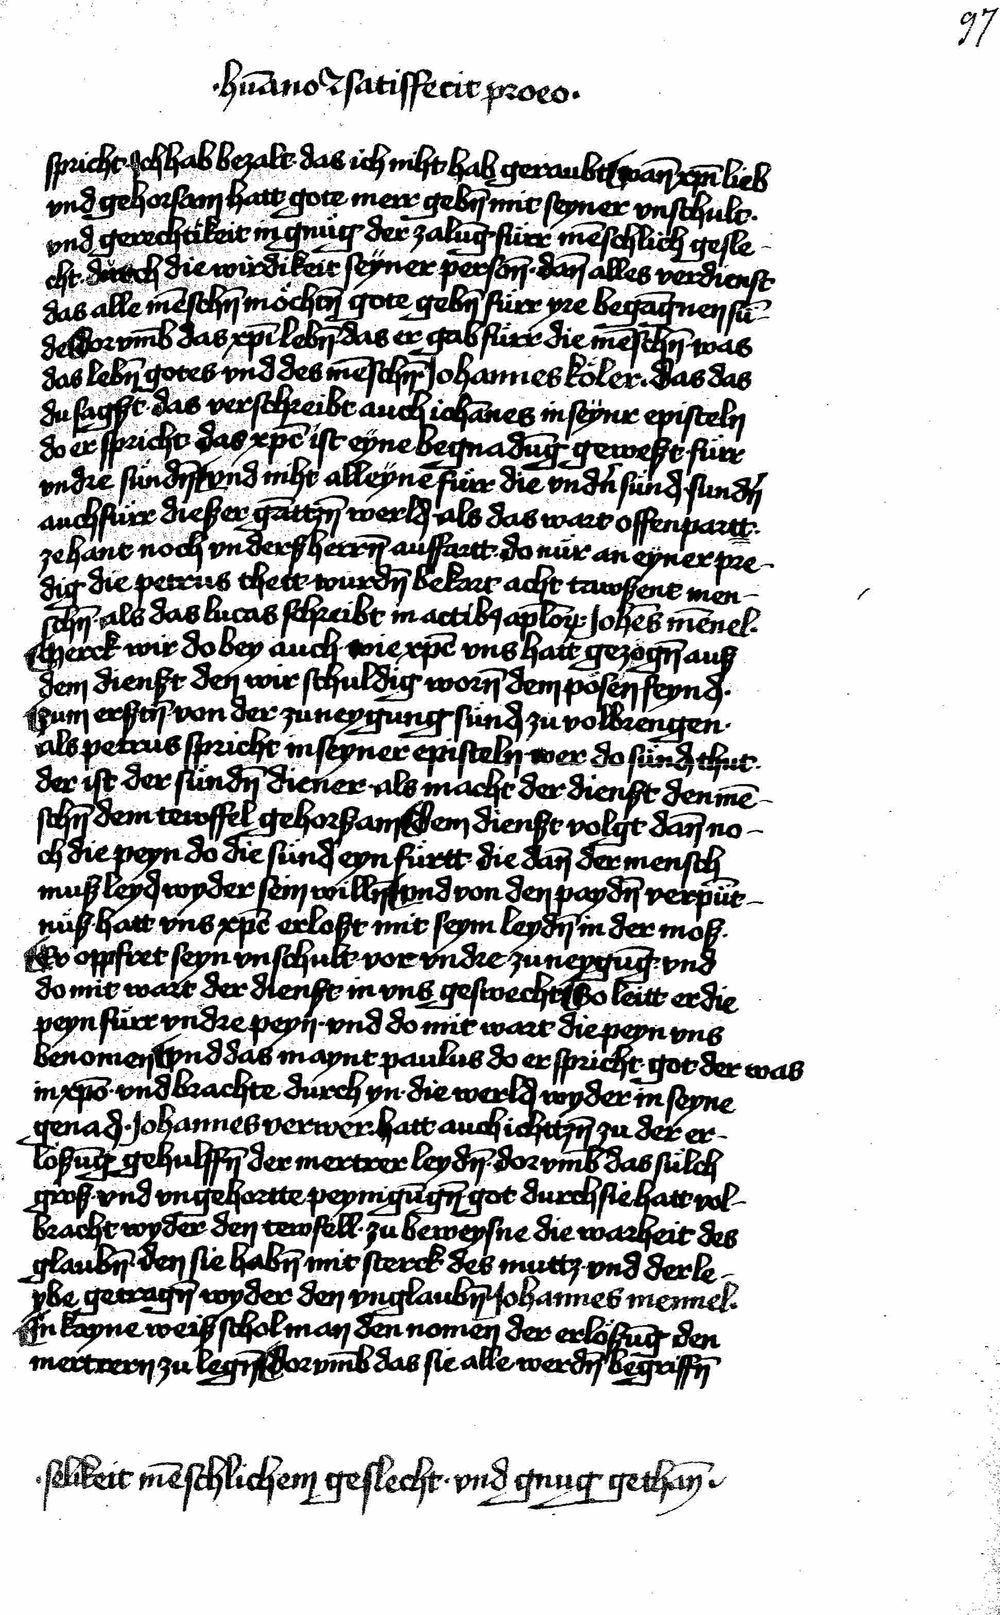 97
·hūano⁊ satisffecit proeo·
spricht· Ich hab bezalt· das ich niht hab geraubt· wan̄ xpī lieb
vnd gehorsam hatt gote merr gebn̄ mit seyner vnschult·
vnd gerechtikeit in gnug der zalūg fürr mēschlich gesle-
cht· durch die wirdikeit seÿner person̄· dan̄ alles verdienst
das alle mēschn̄ möchtn̄ gote gebn̄ fürr yre begāgnen sū-
de· dorvmb das xpī lebn̄ das er gab fürr die mēschn̄· was
das lebn̄ gotes vnd des mēschn̄· Johannes köler· das das
du sagßt· das verschreibt auch iohānes in seÿnr episteln
do er spricht· das xpc̄ ist eÿne begnadūg geweßt· fürr
vndre sündn̄· vnd niht alleÿne fürr die vndn̄ sünd· sundn̄
auch fürr dießer gāttzn̄ werld· als das wart offenpartt·
zehant noch vnderß herrn̄ auffartt· do nür an eyner pre-
dig die petrus thett· wurdn̄ bekart acht tawßent men-
schn̄· als das lucas schreibt in actibꝫ ap̄loꝝ· Johēs mēnel·
Merck wir do bey auch wie xpc̄ vns hatt gezogn̄ auß
dem dienßt den wir schuldig worn̄ dem pösen feynd·
Zum erßtn̄· von der zuneygung sünd zu volbrengen·
als petrus spricht in seyner episteln· wer do sünd thut·
der ist der sündn̄ diener· als macht der dienßt den mē-
schn̄ dem tewffel gehorßam· dem dienßt volgt dan̄ no-
ch die peyn do die sünd eyn fürtt· die dan̄ der mensch
muß leyd wyder sein willn̄· vnd von den paydn̄ verpüt-
nüß· hatt vns xpc̄ erloßt mit seym leydn̄ in der moß·
Er oppfret seyn vnschult vor vndre zuneygūg· vnd
do mit wart der dienßt in vns geswecht· So leitt er die
peyn fürr vndre peyn· vnd do mit wart die peyn vns
benomen· vnd das maynt paulus do er spricht· got der was
in xpō· vnd brachte durch yn· die werld wyder in seyne
genad· Johannes verwer· hatt auch ichttzn̄ zu der er-
lößūg gehulffn̄ der mertrer leydn̄· dorvmb das sülch
groß· vnd vngehortte peynigūgn̄ got durch sie hatt vol-
bracht wyder den tewfell· zu beweysne die warheit des
glaubn̄· den sie habn̄ mit sterck des muttz· vnd der le-
ybe getragn̄ wyder den vnglaubn̄· Johannes mennel·
In kayne weiß schol man den nomen der erlößūg den
mertrern zu legn̄· dorvmb das sie alle werdn̄ begriffn̄
·selikeit mēschlichem geslecht· vnd gnug gethan̄·